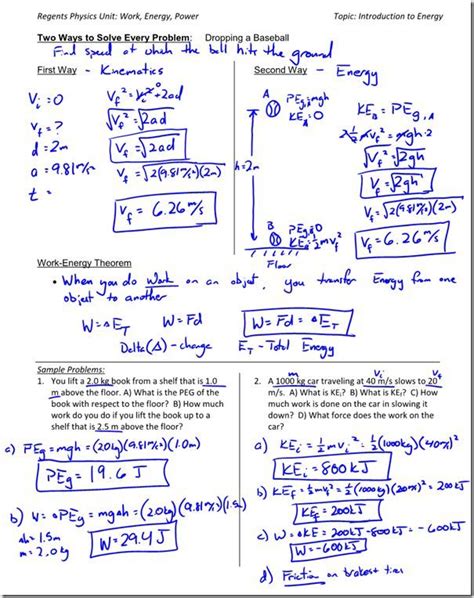 Regents Physics Unit: Work, Energy, Power Topic: Introduction to Energy
Two Ways to Solve Every Problem: Dropping a Baseball
Find speed at which the ball hits the ground
First Way - Kinematics
Vi = 0
Vf = ?
d = 2m
a = 9.81 m/s²
t =
Vf² = Vi² + 2ad
√Vf² = √2ad
Vf = √2ad
Vf = √2(9.81 m/s²)(2m)
Vf = 6.26 m/s
Second Way - Energy
A
PEg = mgh
KEA = 0
h = 2m
B
PEg = 0
KEB = ½mvf²
Floor
KEB = PEg,A
2·½mvf² = mgh·2
√Vf² = √2gh
Vf = √2gh
Vf = √2(9.81 m/s²)(2m)
Vf = 6.26 m/s
Work-Energy Theorem
• When you do work on an object, you transfer Energy from one
object to another
W = ΔET W = Fd W = Fd = ΔET
Delta (Δ) - change ET - Total Energy
Sample Problems:
1. You lift a 2.0 kg book from a shelf that is 1.0
m above the floor. A) What is the PEG of the
book with respect to the floor? B) How much
work do you do if you lift the book up to a
shelf that is 2.5 m above the floor?
a) PEg = mgh = (2.0kg)(9.81 m/s²)(1.0m)
PEg = 19.6 J
b) W = ΔPEg = mgΔh = (2.0kg)(9.81 m/s²)(1.5m)
Δh = 1.5m
m = 2.0kg
W = 29.4 J
m Vi Vf
2. A 1000 kg car traveling at 40 m/s slows to 20
m/s. A) What is KEi? B) What is KEf? C) How
much work is done on the car in slowing it
down? D) What force does the work on the
car?
a) KEi = ½mvi² = ½(1000kg)(40 m/s)²
KEi = 800 kJ
b) KEf = ½mvf² = ½(1000kg)(20 m/s)² = 200 kJ
KEf = 200 kJ
c) W = ΔKE = 200 kJ - 800 kJ = -600 kJ
W = -600 kJ
d) Friction on